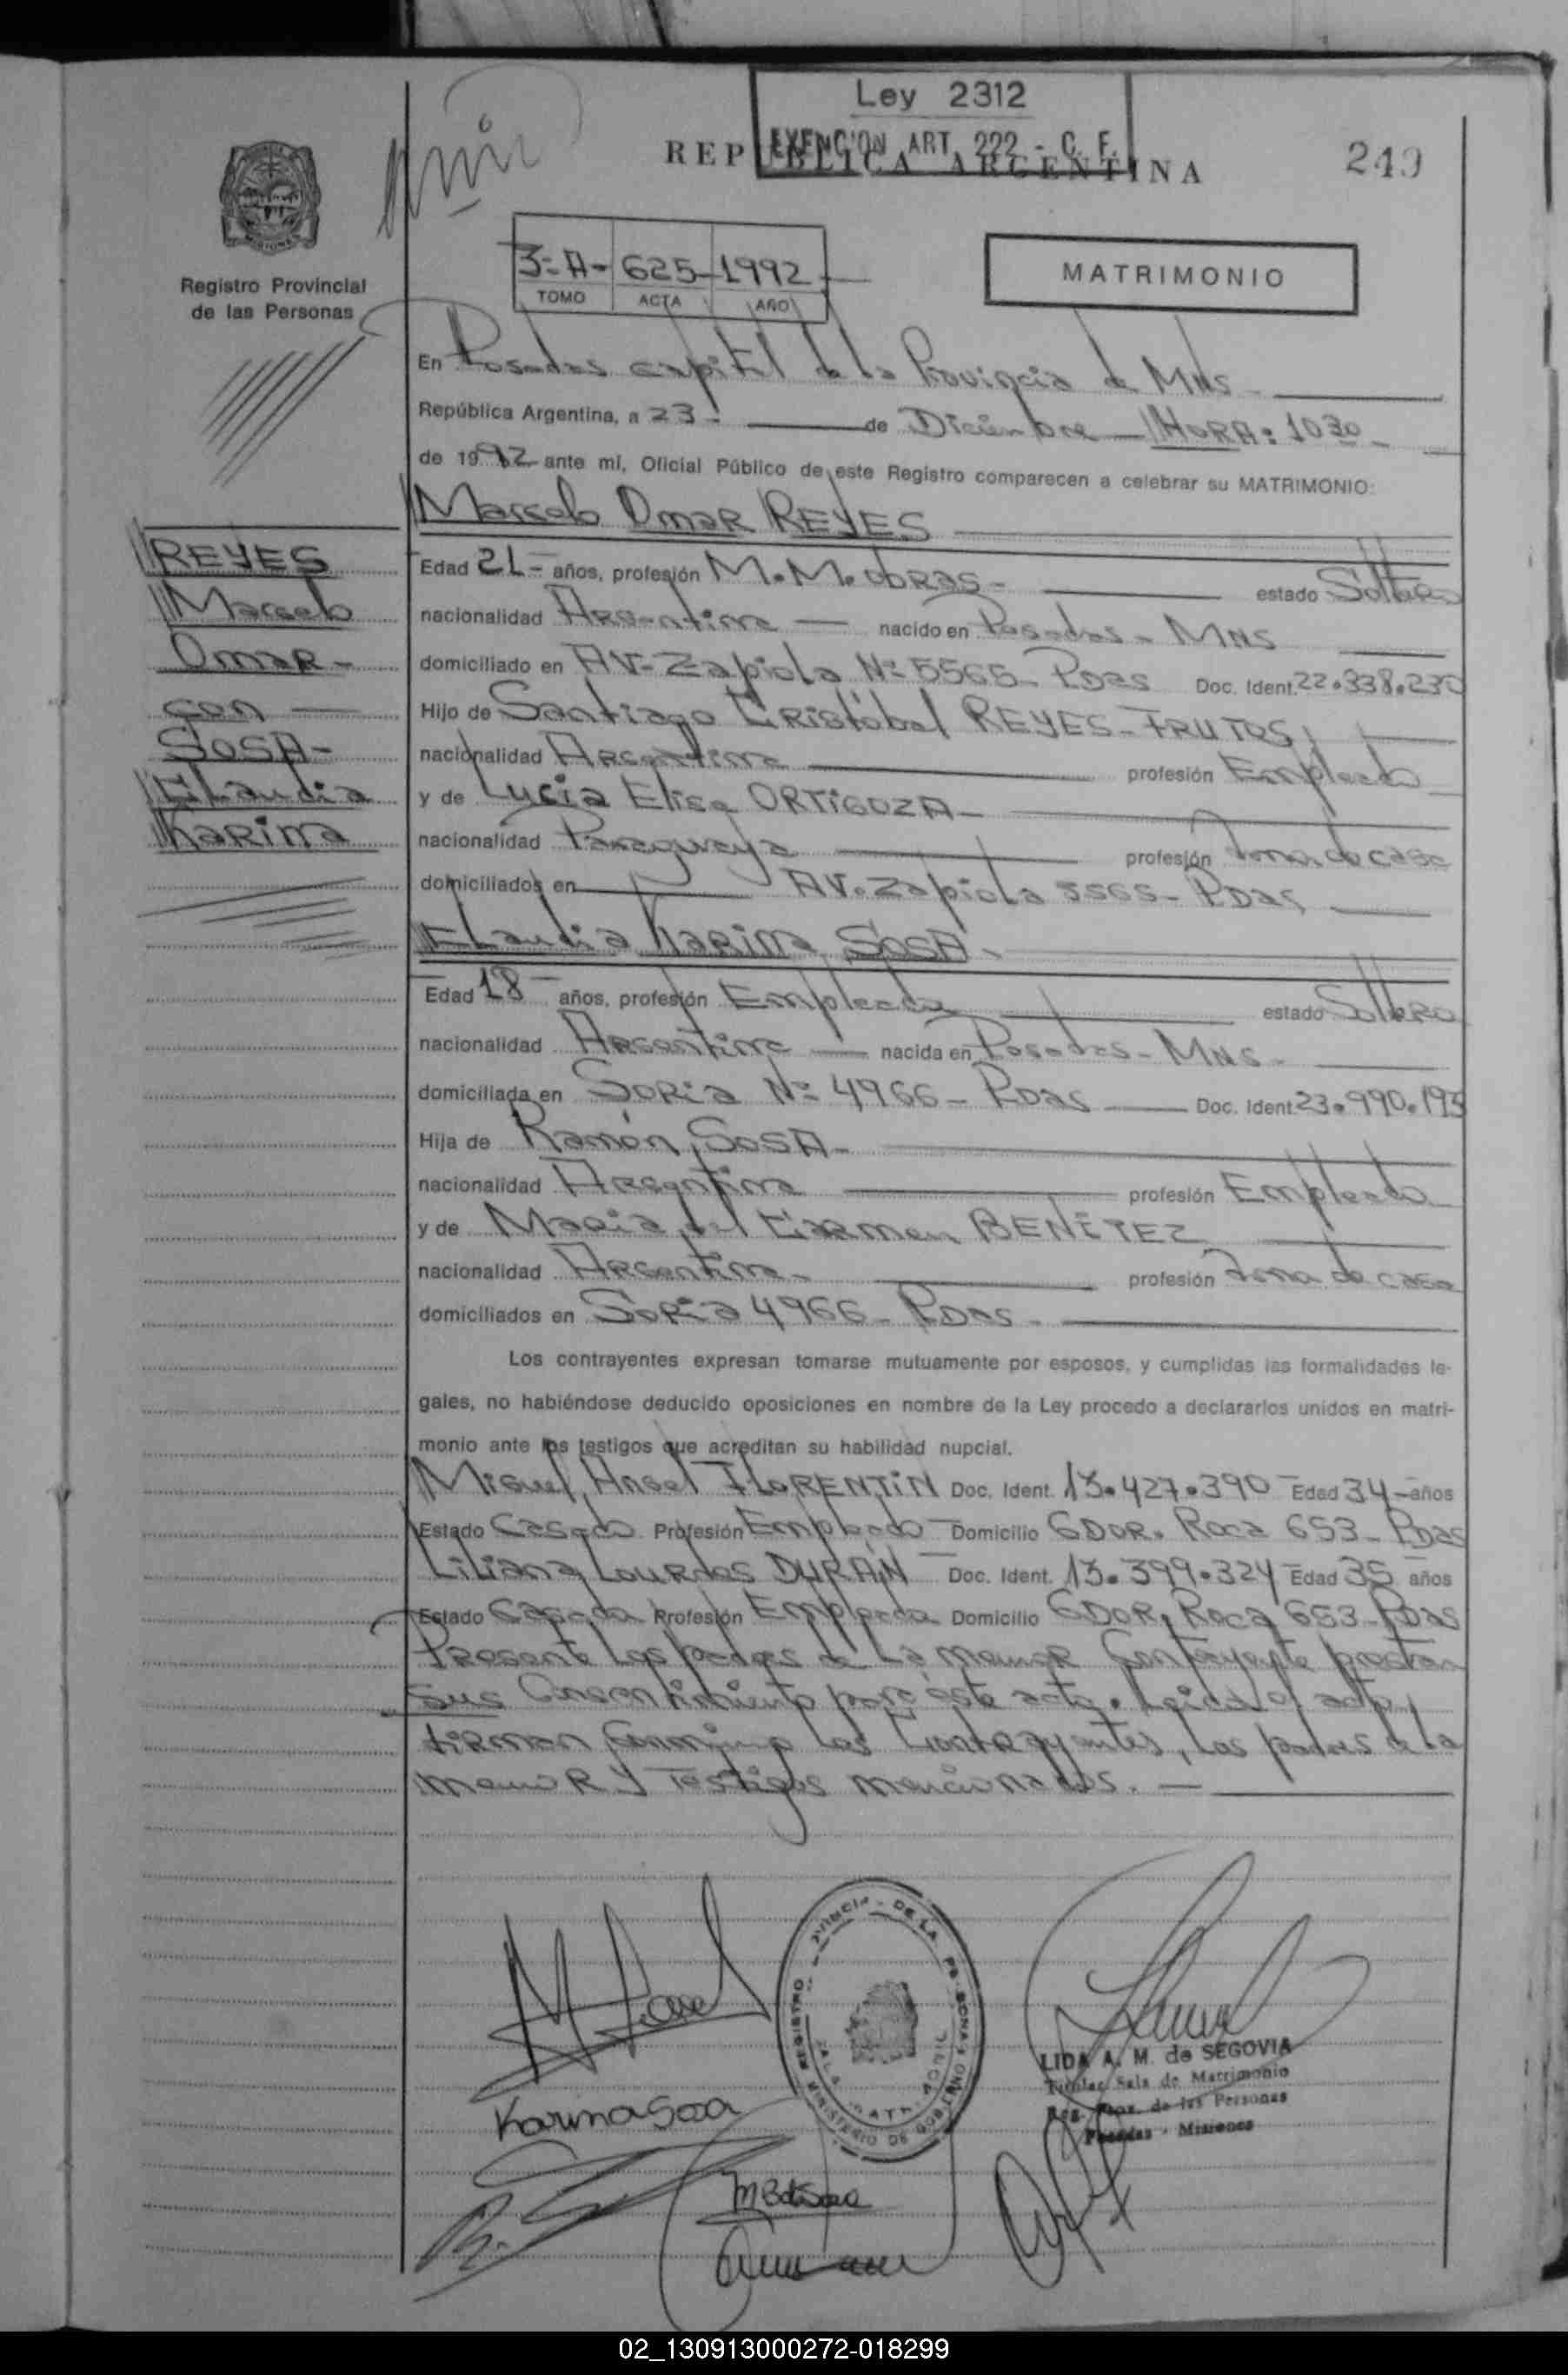 Ley 2312
EXENCION ART. 222 - C. F.
REPUBLICA ARGENTINA
249
Registro Provincial
de las Personas
3-A- 625-1992-
TOMO ACTA AÑO
MATRIMONIO
En Posadas capital de la Provincia de Mns
República Argentina, a 23- de Diciembre HORA: 1030-
de 1992 ante mí, Oficial Público de este Registro comparecen a celebrar su MATRIMONIO:
Marcelo Omar REYES
Edad 21- años, profesión M.M. obras- estado Soltero
nacionalidad Argentina nacido en Posadas- MNS
domiciliado en AV- Zapiola Nº 5565- PDas Doc. Ident. 22.338.230
Hijo de Santiago Cristóbal REYES-FRUTOS
nacionalidad Argentina profesión Empleado
y de Lucia Elisa ORTIGOZA-
nacionalidad Paraguaya profesión Ama de casa
domiciliados en AV. Zapiola 5565- PDas
Claudia Karina SOSA-
Edad 18- años, profesión Empleada estado Soltera
nacionalidad Argentina nacida en Posadas- MNS-
domiciliada en Soria Nº 4966- PDas Doc. Ident. 23.990.193
Hija de Ramón SOSA-
nacionalidad Argentina profesión Empleado
y de Maria del Carmen BENÍTEZ
nacionalidad Argentina- profesión Ama de casa
domiciliados en Soria 4966- PDas-
Los contrayentes expresan tomarse mutuamente por esposos, y cumplidas las formalidades le-
gales, no habiéndose deducido oposiciones en nombre de la Ley procedo a declararlos unidos en matri-
monio ante los testigos que acreditan su habilidad nupcial.
Miguel Angel FLORENTIN Doc. Ident. 13.427.390 Edad 34- años
Estado Casado Profesión Empleado Domicilio GDOR. Roca 653- PDas
Liliana Lourdes DURAN Doc. Ident. 13.399.324 Edad 35 años
Estado Casada Profesión Empleada Domicilio GDOR. Roca 653- PDas
Presente los padres de la menor Contrayente prestan
sus Consentimiento para este acto. Leida el acta,
firman conmigo los Contrayentes, los padres de la
menor y Testigos mencionados.-
REYES
Marcelo
Omar-
con
SOSA-
Claudia
Karina
Karina Sosa
LIDA A. M. de SEGOVIA
Titular Sala de Matrimonio
Reg. Prov. de las Personas
Posadas - Misiones
02_130913000272-018299